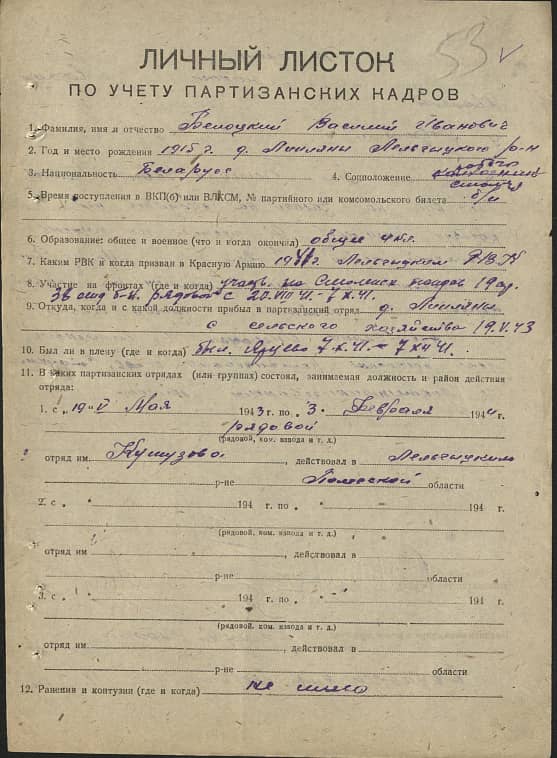 53 √
ЛИЧНЫЙ ЛИСТОК
ПО УЧЕТУ ПАРТИЗАНСКИХ КАДРОВ
1. Фамилия, имя и отчество Белоцкий Василий Иванович
2. Год и место рождения 1915 г. д. Липляны Лельчицкого р-н
3. Национальность Беларус 4. Соцположение
5. Время поступления в ВКП(б) или ВЛКСМ, № партийного или комсомольского билета б/п
6. Образование: общее и военное (что и когда окончил) общее 4 кл.
7. Каким РВК и когда призван в Красную Армию 1941 г. Лельчицким РВК
8. Участие на фронтах (где и когда) на Смоленск
рядовой с 20.VII 41 - 7 X.41.
9. Откуда, когда и с какой должности прибыл в партизанский отряд д. Липляны
с сельского хозяйства 19.V.43
10. Был ли в плену (где и когда) был. Ярцево 7.X.41. - 7 XII 41.
11. В каких партизанских отрядах (или группах) состоял, занимаемая должность и район действия
отряда:
1. с „19-V Мая 1943 г. по „3" Февраля 1944 г.
рядовой
(рядовой, ком. взвода и т. д.)
отряд им Кутузова, действовал в Лельчицким
р-не Полесской области
2. с „ " 194 г. по „ " 194 г.
(рядовой, ком. взвода и т. д.)
отряд им , действовал в
р-не области
3. с „ " 194 г. по „ " 194 г.
(рядовой, ком. взвода и т. д.)
отряд им , действовал в
р-не области
12. Ранения и контузии (где и когда) не имею